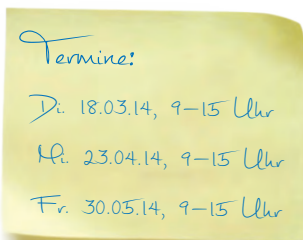 Termine:
Di. 18.03.14, 9–15 Uhr
Mi. 23.04.14, 9–15 Uhr
Fr. 30.05.14, 9–15 Uhr